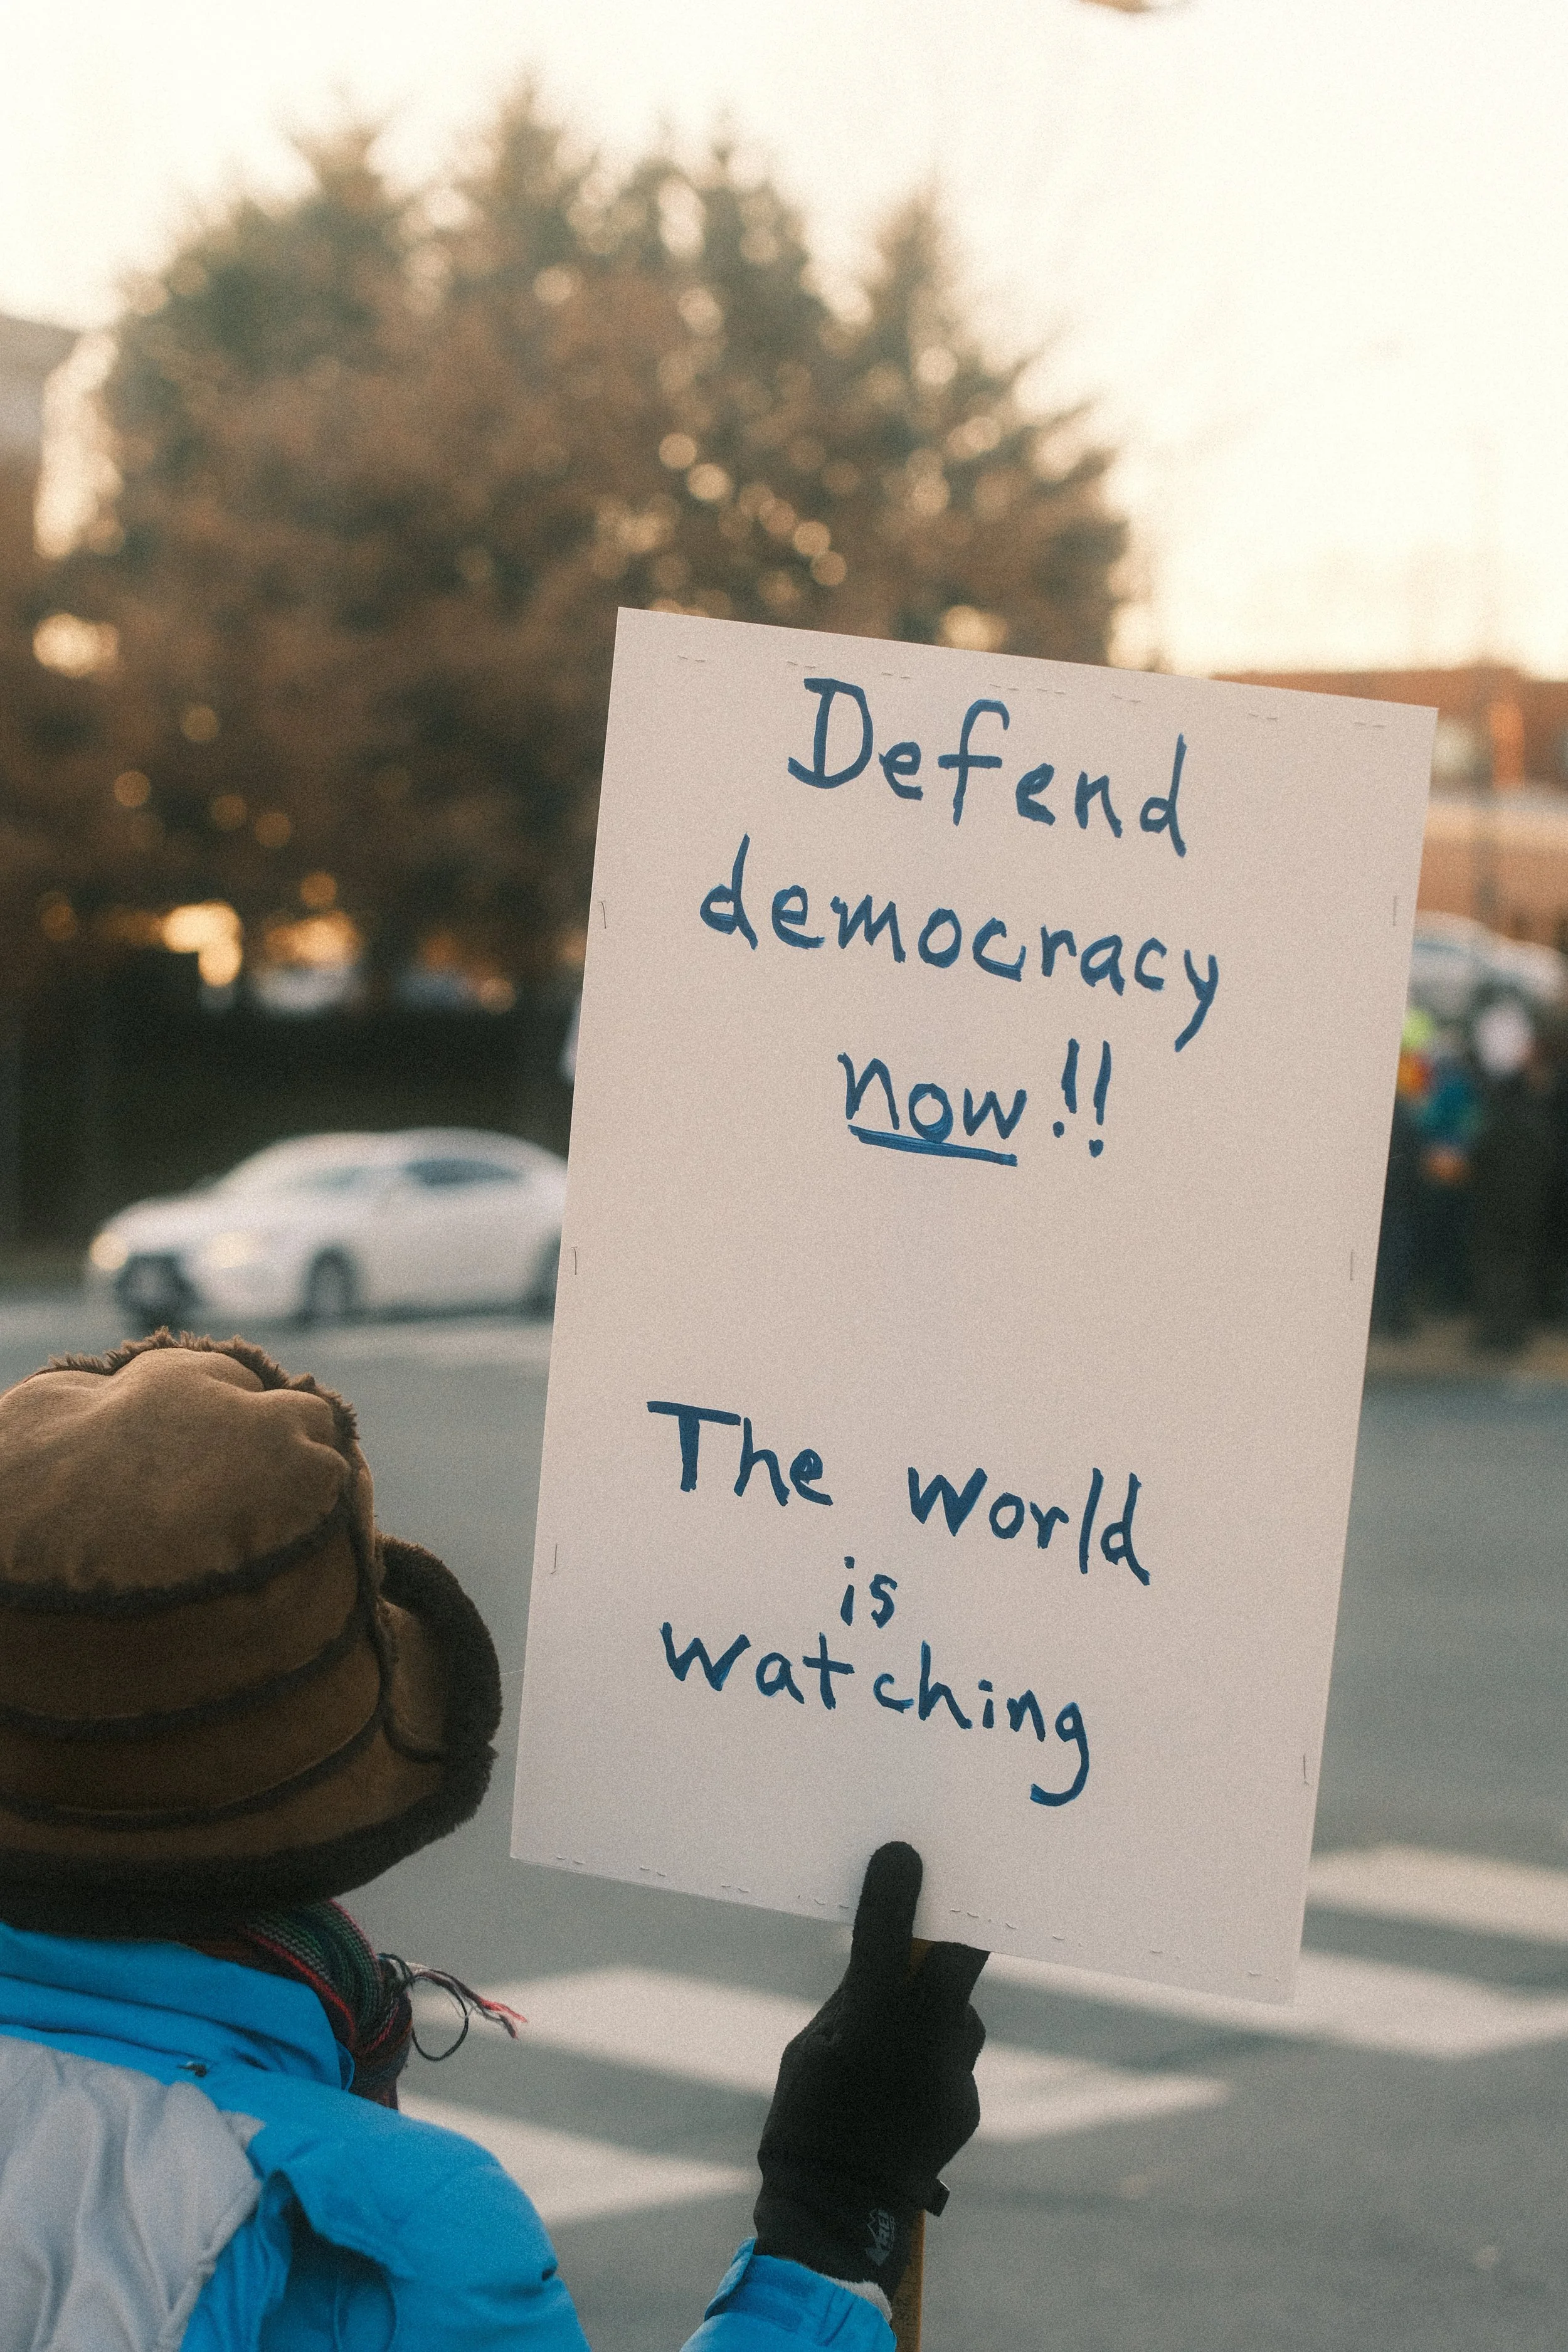 Defend
democracy
now!!
The world
is
watching
REI